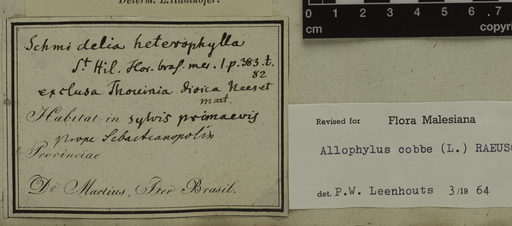 Determ. L. Radlkofer.
Schmidelia heterophylla
St Hil. Flor. bras. mer. 1. p. 383. t.
82
exclusa Thouinia dioica Nees et
mart.
Habitat in sylvis primaevis
prope Sebastianopolin
Provinciae
De Martius, Iter Brasil.
0 1 2 3 4 5 6 7
cm copyri
Revised for Flora Malesiana
Allophylus cobbe (L.) RAEUS
det. P.W. Leenhouts 3/19 64